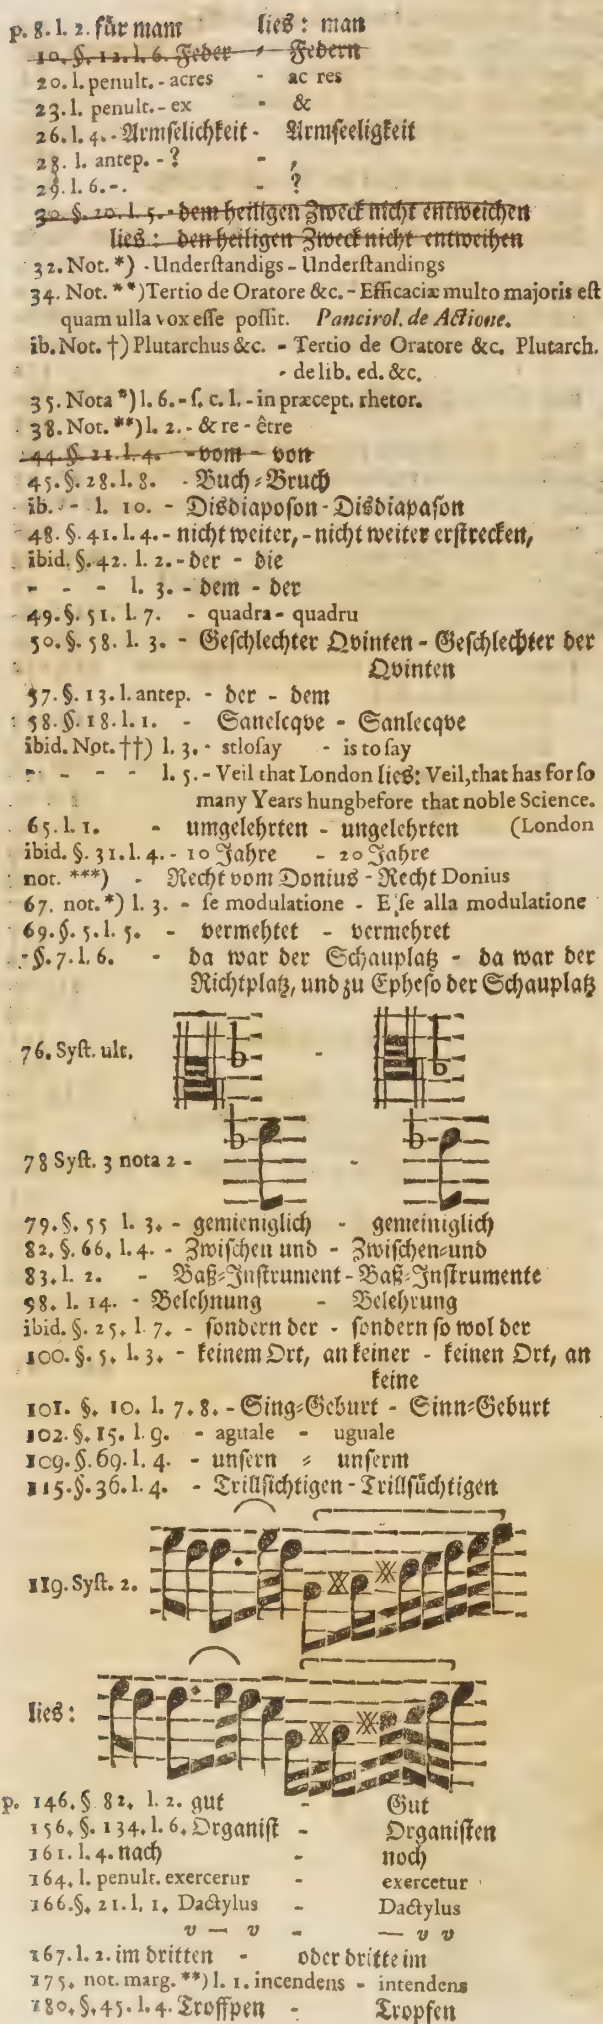 p. 8. l. 2. für mam lies: man
10. §. 12. l. 6. Feder - Federn
20. l. penult. - acres - ac res
23. l. penult. - ex - &
26. l. 4. - Armselichkeit - Armseeligkeit
28. l. antep. - ? - ,
29. l. 6. - . - ?
30. §. 20. l. 5. - dem heiligen Zweck nicht entweichen
lies: den heiligen Zweck nicht entweihen
32. Not. *) - Understandigs - Understandings
34. Not. **) Tertio de Oratore &c. - Efficaciæ multo majoris est
quam ulla vox esse possit. Pancirol. de Actione.
ib. Not. †) Plutarchus &c. - Tertio de Oratore &c. Plutarch.
- de lib. ed. &c.
35. Nota *) l. 6. - s. c. l. - in præcept. rhetor.
38. Not. **) l. 2. - & re - être
44. §. 21. l. 4. - vom - von
45. §. 28. l. 8. - Buch - Bruch
ib. - l. 10. - Disdiaposon - Disdiapason
48. §. 41. l. 4. - nicht weiter, - nicht weiter erstrecken,
ibid. §. 42. l. 2. - der - die
- - - l. 3. - dem - der
49. §. 51. l. 7. - quadra - quadru
50. §. 58. l. 3. - Geschlechter Qvinten - Geschlechter der
Qvinten
57. §. 13. l. antep. - der - dem
58. §. 18. l. 1. - Sanelcqve - Sanlecqve
ibid. Not. ††) l. 3. - stlosay - is to say
- - - l. 5. - Veil that London lies: Veil, that has for so
many Years hungbefore that noble Science.
65. l. 1. - umgelehrten - ungelehrten (London
ibid. §. 31. l. 4. - 10 Jahre - 20 Jahre
not. ***) - Recht vom Donius - Recht Donius
67. not. *) l. 3. - se modulatione - E se alla modulatione
69. §. 5. l. 5. - vermehtet - vermehret
- §. 7. l. 6. - da war der Schauplatz - da war der
Richtplatz, und zu Epheso der Schauplatz
76. Syst. ult. -
78 Syst. 3 nota 2 - -
79. §. 55 l. 3. - gemieniglich - gemeiniglich
82. §. 66. l. 4. - Zwischen und - Zwischen=und
83. l. 2. - Baß=Instrument - Baß=Instrumente
98. l. 14. - Belehnung - Belehrung
ibid. §. 25. l. 7. - sondern der - sondern so wol der
100. §. 5. l. 3. - keinem Ort, an keiner - keinen Ort, an
keine
101. §. 10. l. 7. 8. - Sing=Geburt - Sinn=Geburt
102. §. 15. l. 9. - agutale - uguale
109. §. 69. l. 4. - unsern - unserm
115. §. 36. l. 4. - Trillsichtigen - Trillsüchtigen
119. Syst. 2.
lies:
p. 146. §. 82. l. 2. gut - Gut
156. §. 134. l. 6. Organist - Organisten
161. l. 4. nach - noch
164. l. penult. exercerur - exercetur
166. §. 21. l. 1. Dactylus - Dactylus
v — v - — v v
167. l. 2. im dritten - oder dritte im
175. not. marg. **) l. 1. incendens - intendens
180. §. 45. l. 4. Troffpen - Tropfen